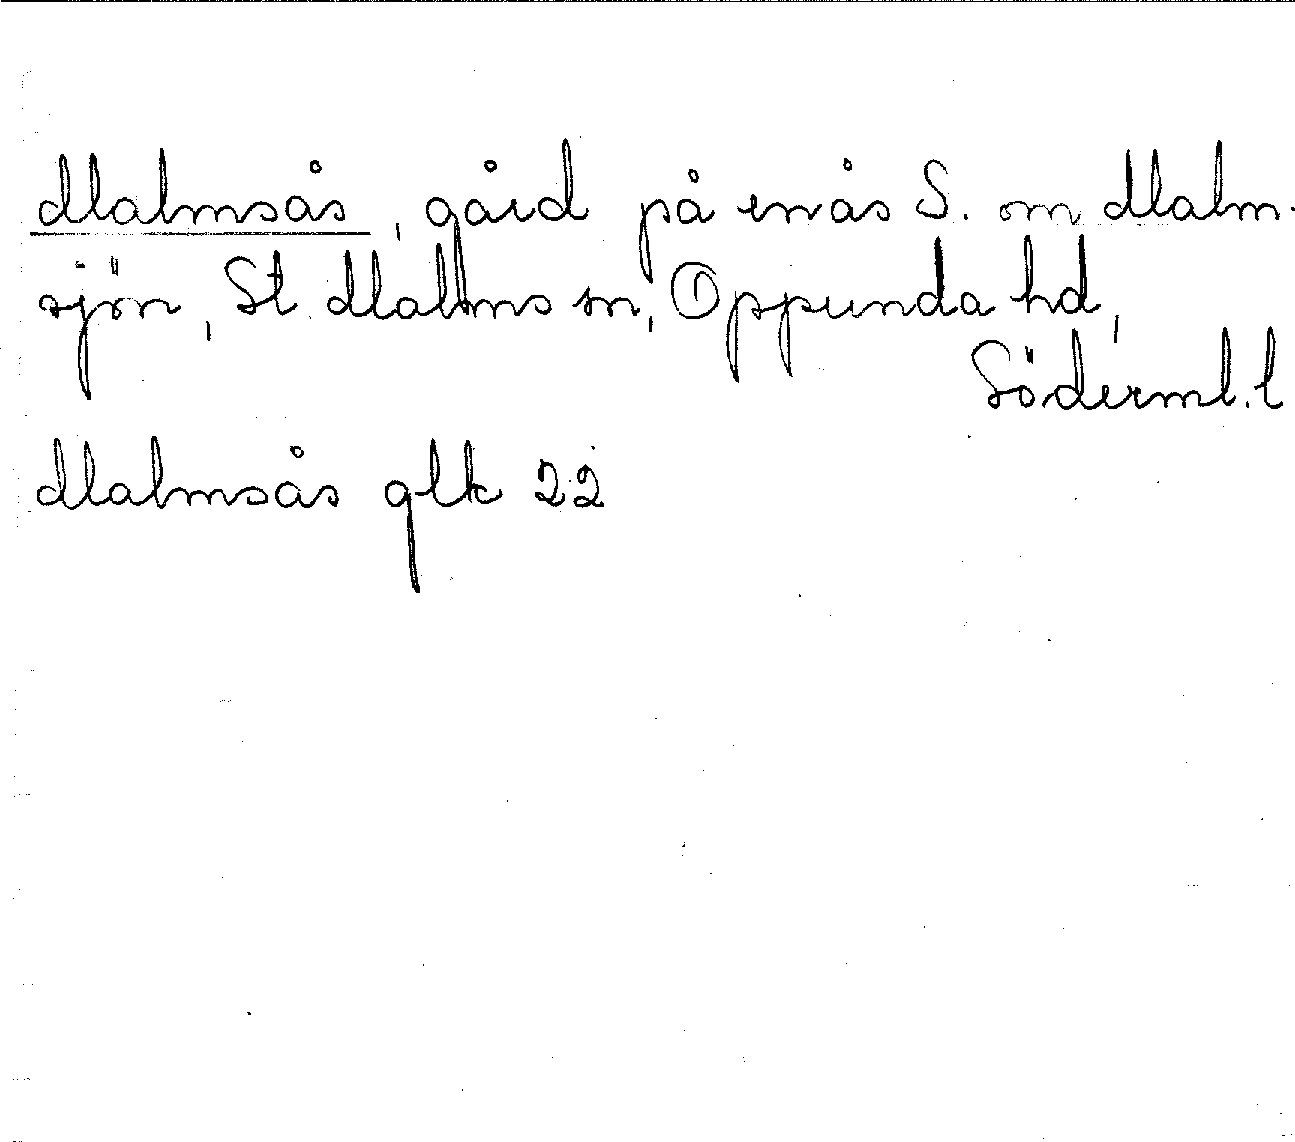 Malmsås, gård på en ås S. om Malm-
sjön, St. Malms sn, Oppunda hd,
Söderml. l
Malmsås glk 22